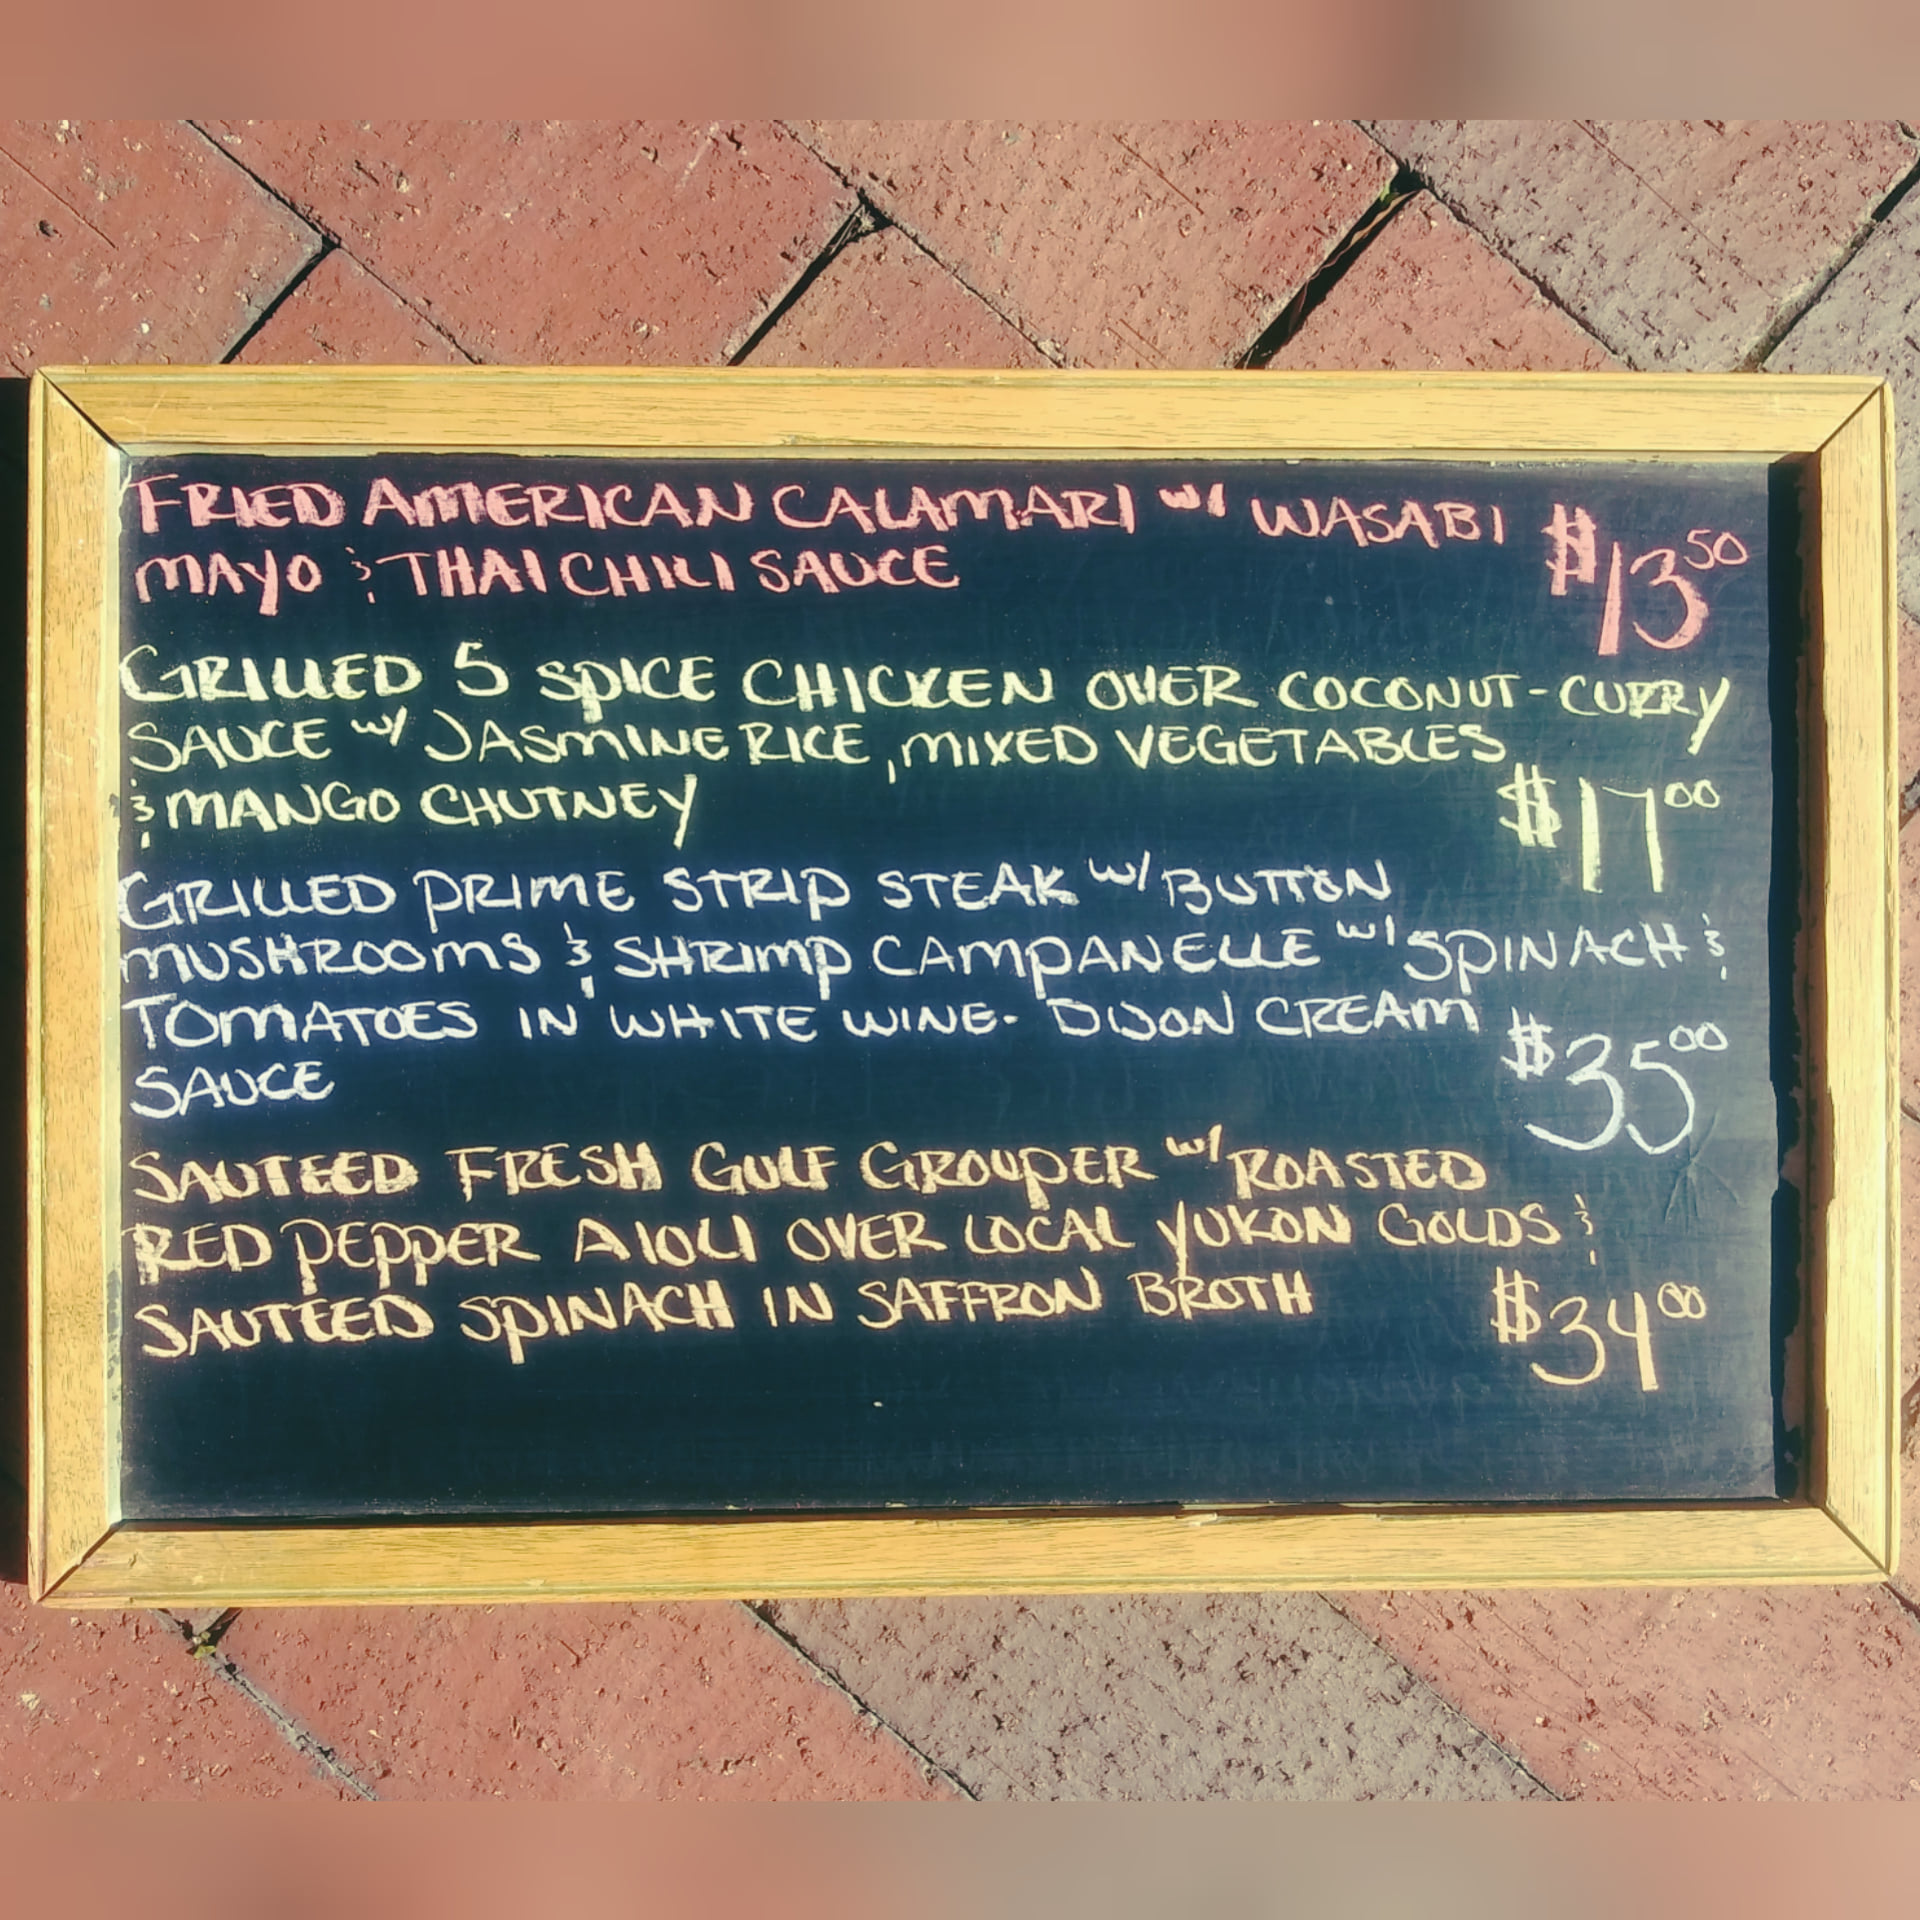 FRIED AMERICAN CALAMARI w/ WASABI
MAYO & THAI CHILI SAUCE $13.50
GRILLED 5 SPICE CHICKEN OVER COCONUT-CURRY
SAUCE w/ JASMINE RICE, MIXED VEGETABLES
& MANGO CHUTNEY $17.00
GRILLED PRIME STRIP STEAK w/ BUTTON
MUSHROOMS & SHRIMP CAMPANELLE w/ SPINACH &
TOMATOES IN WHITE WINE- DIJON CREAM
SAUCE $35.00
SAUTEED FRESH GULF GROUPER w/ ROASTED
RED PEPPER AIOLI OVER LOCAL YUKON GOLDS &
SAUTEED SPINACH IN SAFFRON BROTH $34.00